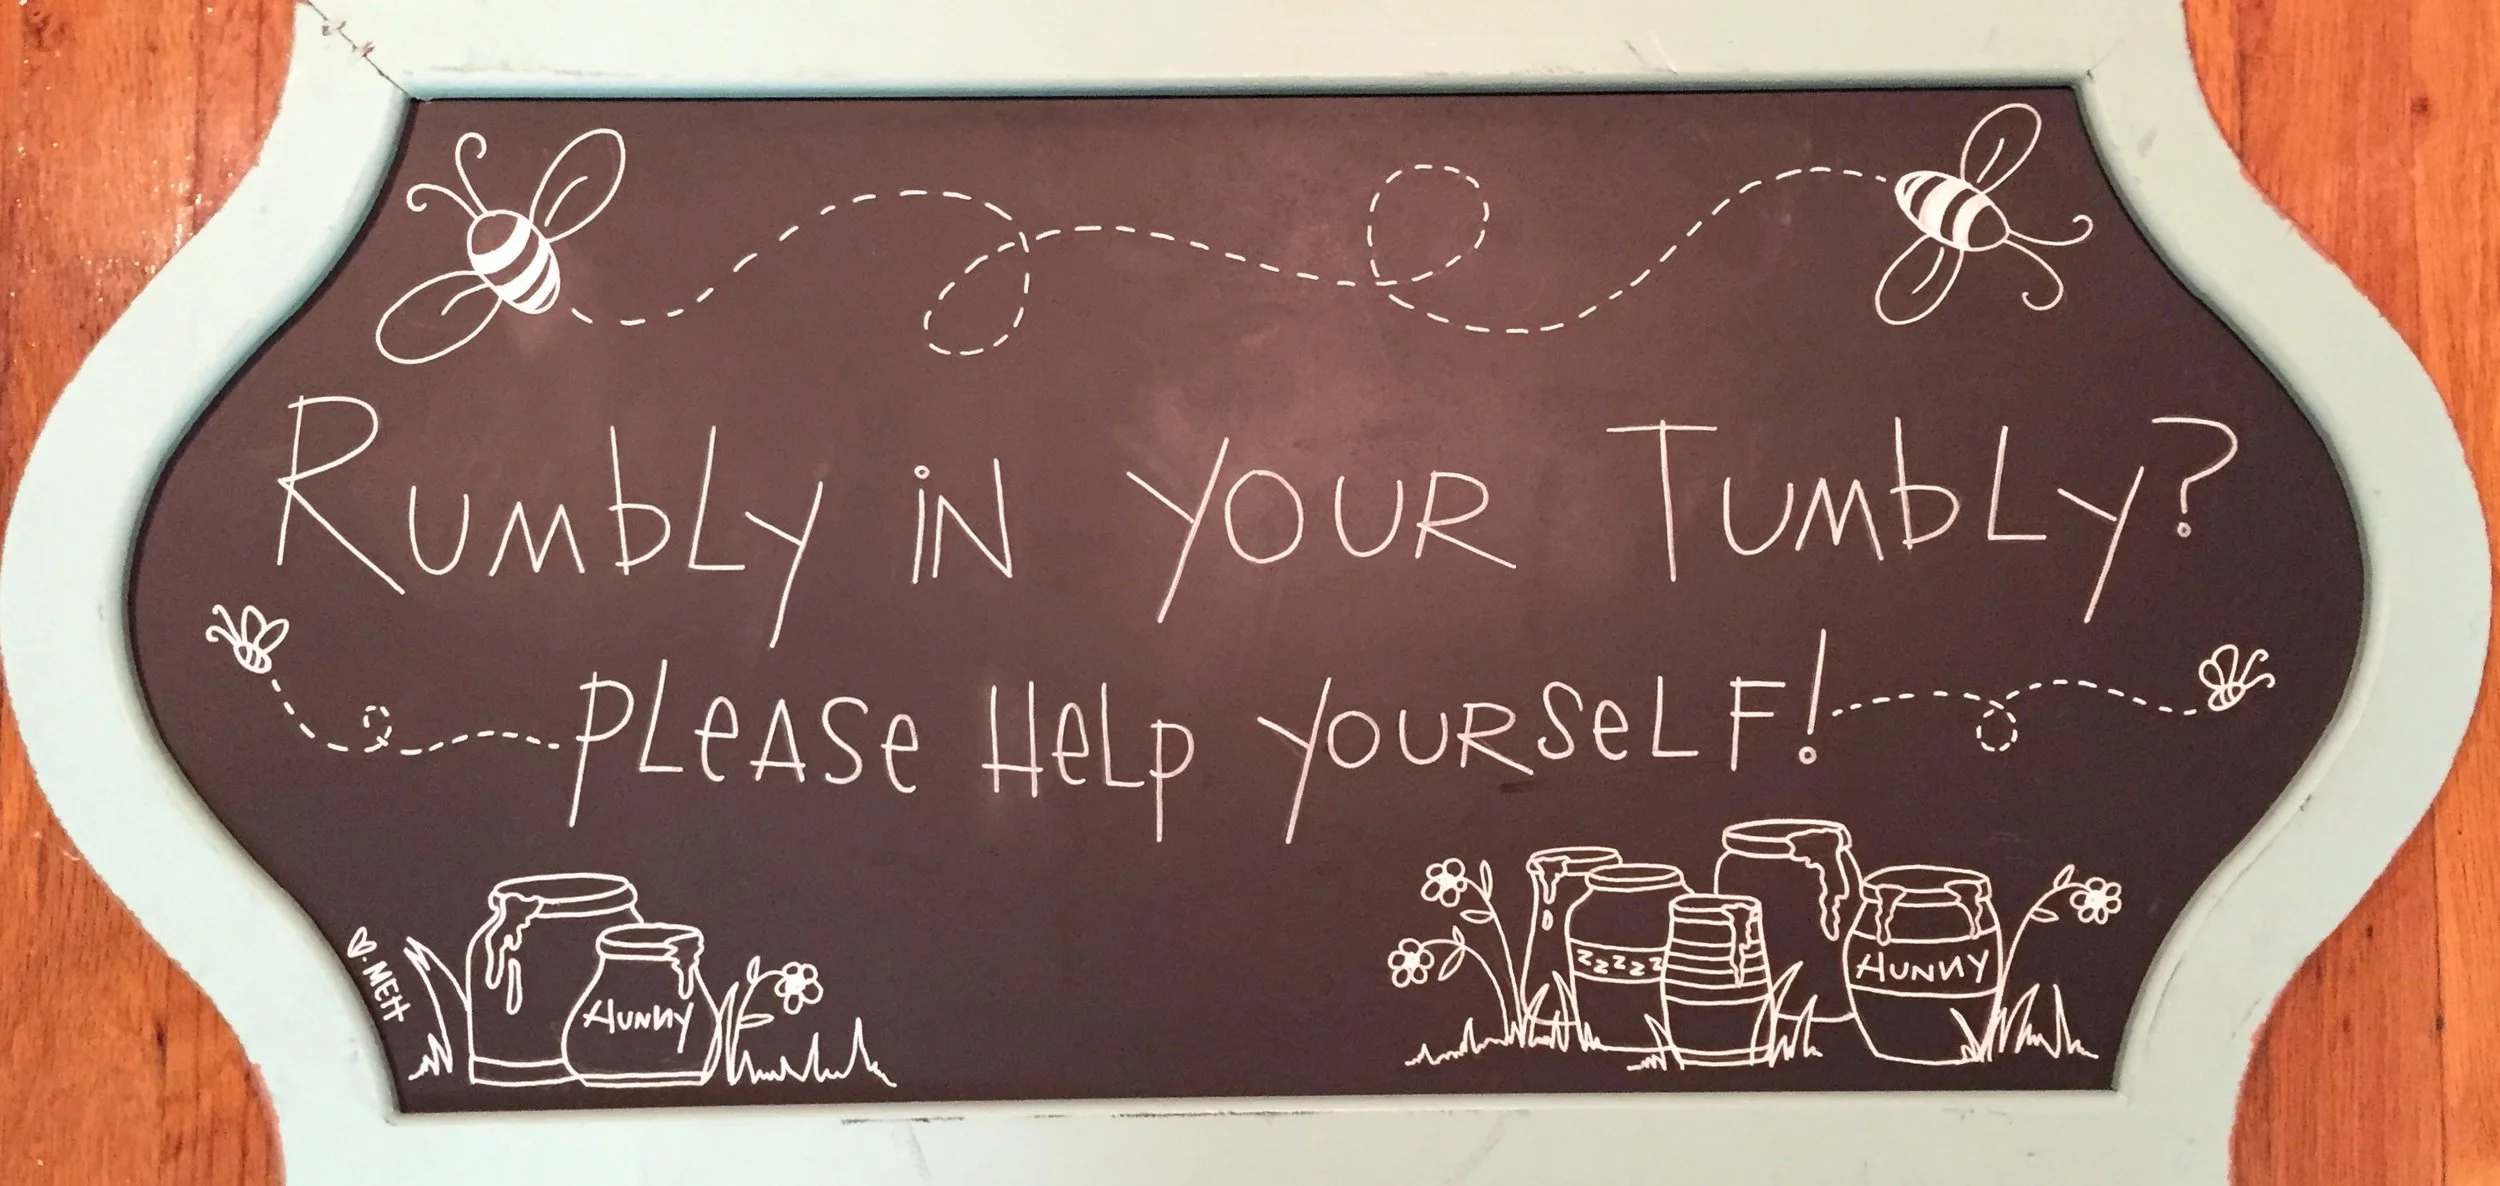 RUMbLy iN yOUR TUMbLy?
PLeASe HeLp yOURSeLF!
MEH
HUNNy
zzzzz
HUNNy